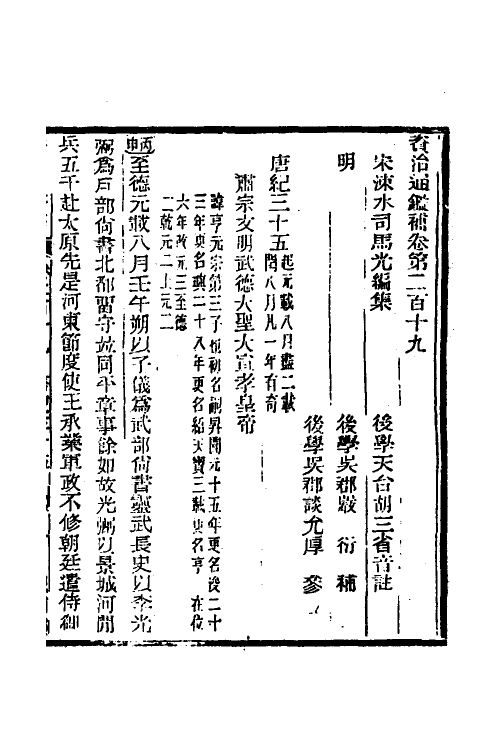 資治通鑑補卷第二百十九
宋涑水司馬光編集 後學天台胡三省音註
明 後學吳郡嚴衍補
後學吳郡談允厚參
唐紀三十五起元載八月盡二載
閏八月凡一年有奇
肅宗文明武德大聖大宣孝皇帝
諱亨元宗第三子初名嗣昇開元十五年更名浚二十
三年更名璵二十八年更名紹天寶三載更名亨 在位
六年改元三至德
二乾元二上元二
丙申至德元載八月壬午朔以子儀爲武部尚書靈武長史以李光
弼爲戶部尚書北都留守並同平章事餘如故光弼以景城河間
兵五千赴太原先是河東節度使王承業軍政不修朝廷遣侍御